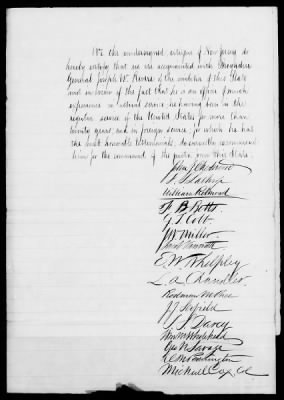 We the undersigned, citizens of New Jersey do
hereby certify that we are acquainted with Brigadier
General Joseph W. Revere of the militia of this State
and inform of the fact that he is an officer of much
experience in actual service he having been in the
regular service of the United States for more than
twenty years and in foreign service, for which he has
the most honorable testimonials. We earnestly recommend
him for the command of the quota from this State.
William Kirkwood
F. B. Betts
G. T. Cobb
J W Miller
E. W. Whelpley
L. A. Chandler
Rodman M. Price
J. S. Darcy
Geo. N. Savage
Michael Cox